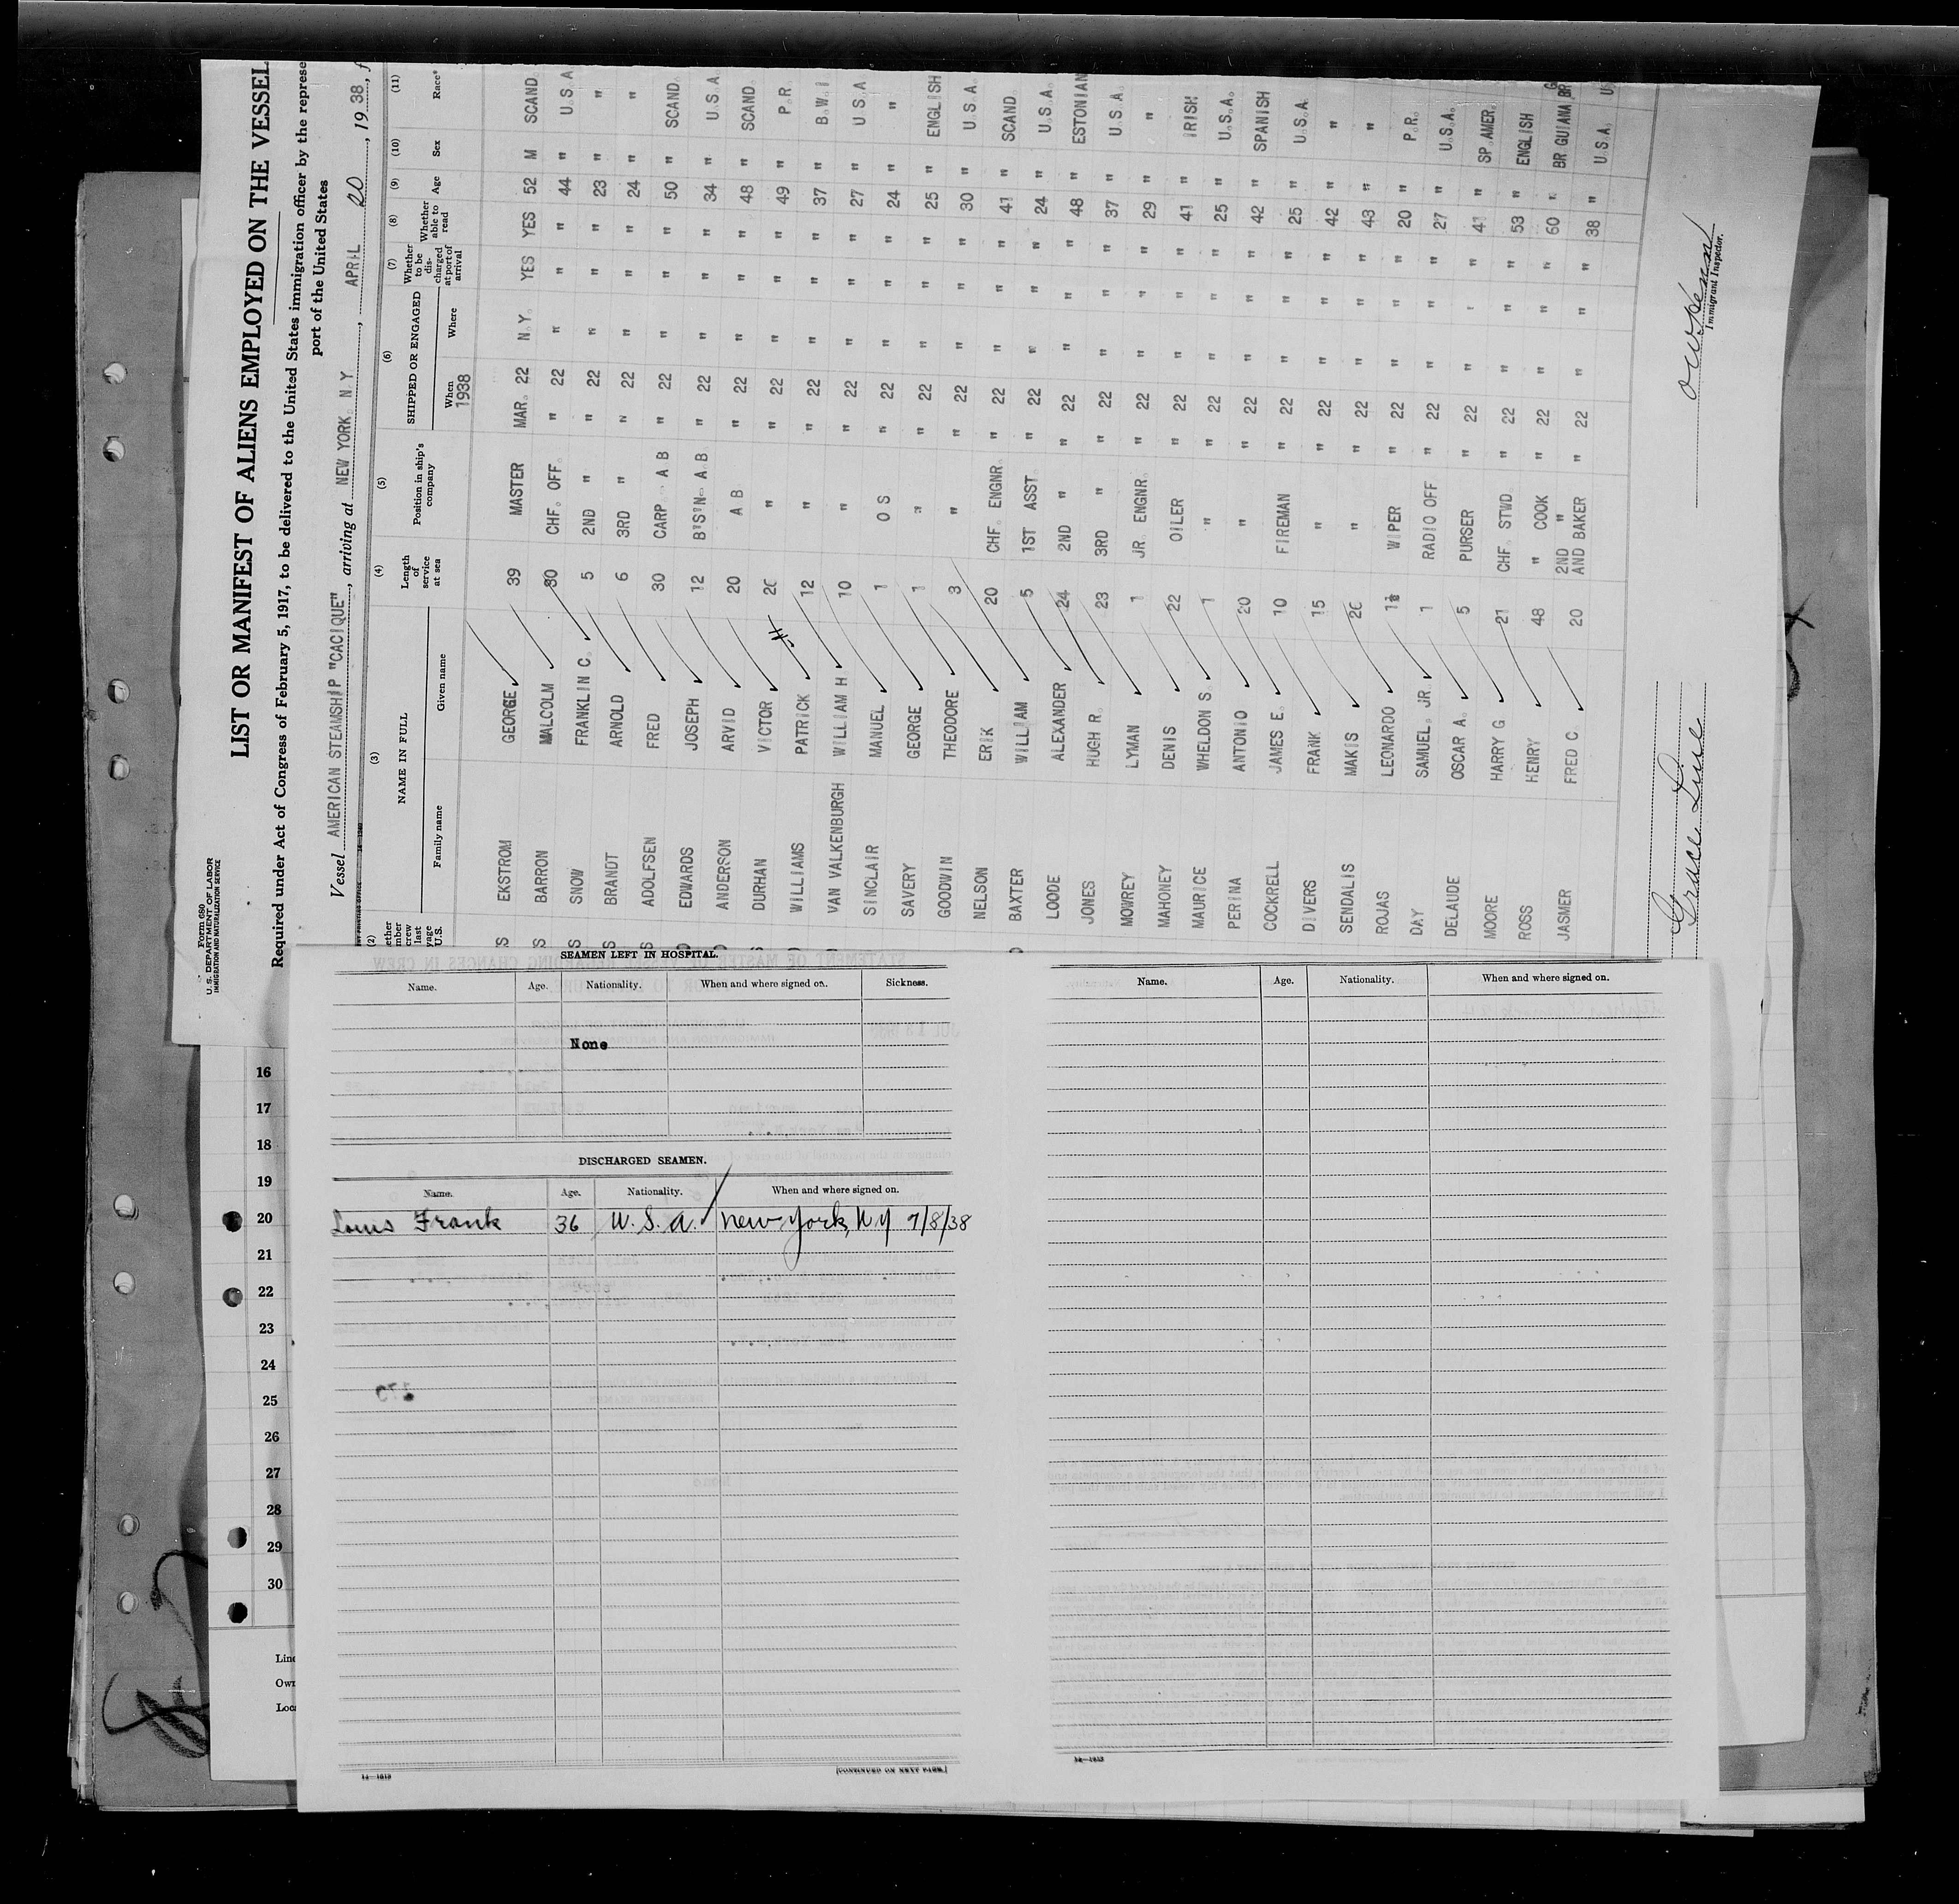 Form 680
U. S. DEPARTMENT OF LABOR
IMMIGRATION AND NATURALIZATION SERVICE
LIST OR MANIFEST OF ALIENS EMPLOYED ON THE VESSEL
Required under Act of Congress of February 5, 1917, to be delivered to the United States immigration officer by the represe
port of the United States
Vessel AMERICAN STEAMSHIP "CACIQUE", arriving at NEW YORK. N Y, APRIL 20, 1938, f
(2) (3) (4) (5) (6) (7) (8) (9) (10) (11)
NAME IN FULL
Family name Given name
Length of service at sea
Position in ship's company
SHIPPED OR ENGAGED
When Where
1938
Whether to be discharged at port of arrival
Whether able to read
Age Sex Race*
EKSTROM GEORGE 39 MASTER MAR. 22 N.Y. YES YES 52 M SCAND.
BARRON MALCOLM 30 CHF. OFF. " 22 " " " 44 " U.S.A
SNOW FRANKLIN C. 5 2ND " " 22 " " " 23 " "
BRANDT ARNOLD 6 3RD " " 22 " " " 24 "
ADOLFSEN FRED 30 CARP. A B " 22 " " " 50 " SCAND.
EDWARDS JOSEPH 12 B'S'N. A.B. " 22 " " " 34 " U.S.A
ANDERSON ARVID 20 A B " 22 " " " 48 " SCAND.
DURHAN VICTOR 26 " " 22 " " " 49 " P.R.
WILLIAMS PATRICK 12 " " 22 " " " 37 " B.W.I
VAN VALKENBURGH WILLIAM H 10 " " 22 " " " 27 " U S.A
SINCLAIR MANUEL 1 O S " 22 " " " 24 " "
SAVERY GEORGE 1 " " 22 " " " 25 " ENGLISH
GOODWIN THEODORE 3 " " 22 " " " 30 " U.S.A.
NELSON ERIK 20 CHF. ENGNR. " 22 " " " 41 " SCAND.
BAXTER WILLIAM 5 1ST ASST " 22 " " " 24 " U.S.A.
LOODE ALEXANDER 24 2ND " " 22 " " " 48 " ESTONIAN
JONES HUGH R. 23 3RD " " 22 " " " 37 " U.S.A.
MOWREY LYMAN 1 JR. ENGNR. " 22 " " " 29 " "
MAHONEY DENIS 22 OILER " 22 " " " 41 " IRISH
MAURICE WHELDON S. 1 " " 22 " " " 25 " U.S.A.
PERINA ANTONIO 20 " " 22 " " " 42 " SPANISH
COCKRELL JAMES E. 10 FIREMAN " 22 " " " 25 " U.S.A.
DIVERS FRANK 15 " " 22 " " " 42 " "
SENDALIS MAKIS 26 " " 22 " " " 43 " "
ROJAS LEONARDO 1½ WIPER " 22 " " " 20 " P.R.
DAY SAMUEL. JR 1 RADIO OFF " 22 " " " 27 " U.S.A.
DELAUDE OSCAR A. 5 PURSER " 22 " " " 41 " SP.AMER.
MOORE HARRY G 21 CHF. STWD. " 22 " " " 53 " ENGLISH
ROSS HENRY 48 " COOK " 22 " " " 60 " BR GUIANA
JASMER FRED C. 20 2ND " AND BAKER " 22 " " " 38 " U.S.A.
Grace Line
Immigrant Inspector.
SEAMEN LEFT IN HOSPITAL.
Name. Age. Nationality. When and where signed on. Sickness.
None
DISCHARGED SEAMEN.
Name. Age. Nationality. When and where signed on.
Louis Frank 36 U. S. A. New York, N Y 7/8/38
14—1513
[CONTINUED ON NEXT PAGE.]
Name. Age. Nationality. When and where signed on.
14—1513
16
17
18
19
20
21
22
23
24
25
26
27
28
29
30